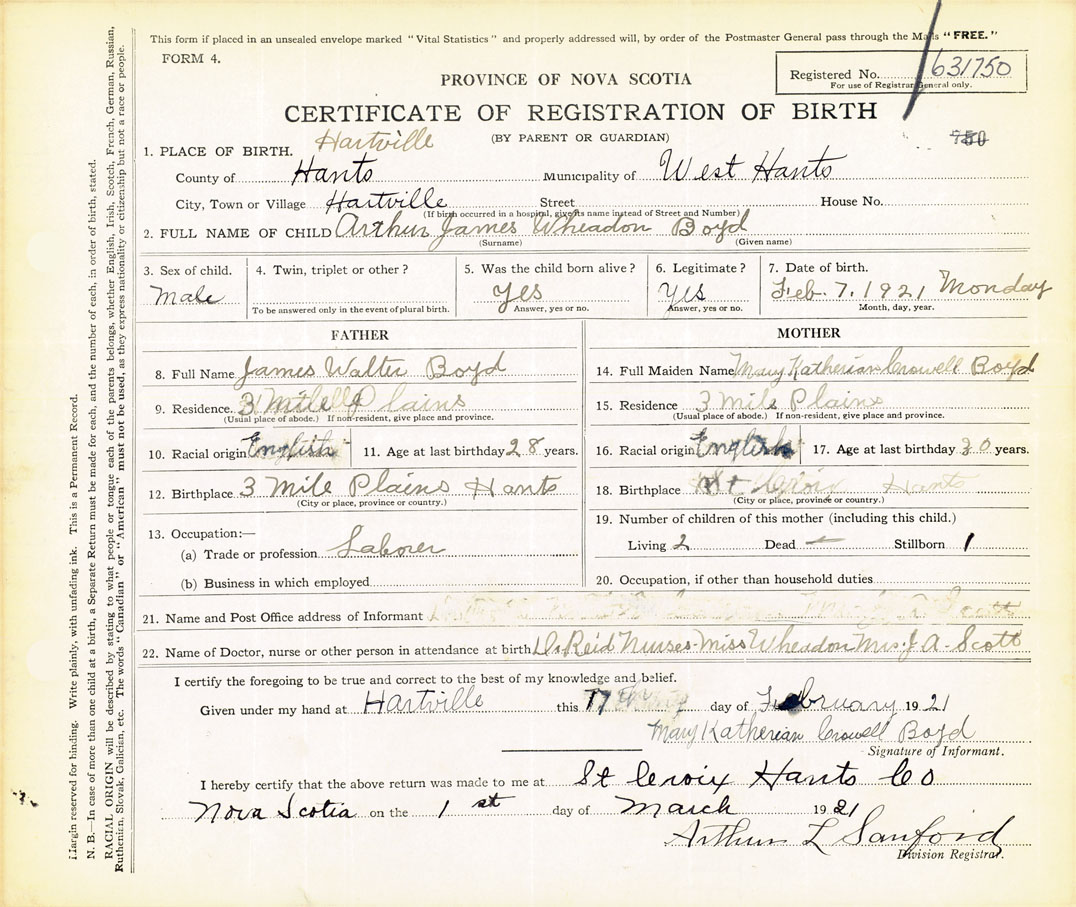 This form if placed in an unsealed envelope marked "Vital Statistics" and properly addressed will, by order of the Postmaster General pass through the Mails "FREE."
FORM 4.
Registered No. 631750
For use of Registrar General only.
PROVINCE OF NOVA SCOTIA
CERTIFICATE OF REGISTRATION OF BIRTH
(BY PARENT OR GUARDIAN)
750
Hartville
1. PLACE OF BIRTH.
County of Hants Municipality of West Hants
City, Town or Village Hartville Street House No.
(If birth occurred in a hospital, give its name instead of Street and Number)
2. FULL NAME OF CHILD Arthur James Wheadon Boyd
(Surname) (Given name)
3. Sex of child. 4. Twin, triplet or other? 5. Was the child born alive? 6. Legitimate? 7. Date of birth.
Male Yes Yes Feb. 7. 1921 Monday
To be answered only in the event of plural birth. Answer, yes or no. Answer, yes or no. Month, day, year.
FATHER
8. Full Name James Walter Boyd
9. Residence 3 Mile Plains
(Usual place of abode.) If non-resident, give place and province.
10. Racial origin English 11. Age at last birthday 28 years.
12. Birthplace 3 Mile Plains Hants
(City or place, province or country.)
13. Occupation:—
(a) Trade or profession Laborer
(b) Business in which employed
MOTHER
14. Full Maiden Name Mary Katherian Crowell Boyd
15. Residence 3 Mile Plains
(Usual place of abode.) If non-resident, give place and province.
16. Racial origin English 17. Age at last birthday 30 years.
18. Birthplace St Croix Hants
(City or place, province or country.)
19. Number of children of this mother (including this child.)
Living 2 Dead — Stillborn 1
20. Occupation, if other than household duties
21. Name and Post Office address of Informant
22. Name of Doctor, nurse or other person in attendance at birth Dr Reid Nurses-Miss Wheadon Mrs. J A. Scott
I certify the foregoing to be true and correct to the best of my knowledge and belief.
Given under my hand at Hartville this 17th day of February 1921
Mary Katherian Crowell Boyd
Signature of Informant.
I hereby certify that the above return was made to me at St Croix Hants Co
Nova Scotia on the 1st day of March 1921
Arthur L Sanford
Division Registrar.
Margin reserved for binding. Write plainly, with unfading ink. This is a Permanent Record.
N. B.—In case of more than one child at a birth, a Separate Return must be made for each, and the number of each, in order of birth, stated.
RACIAL ORIGIN will be described by stating to what people or tongue each of the parents belongs, whether English, Irish, Scotch, French, German, Russian,
Ruthenian, Slovak, Galician, etc. The words "Canadian" or "American" must not be used, as they express nationality or citizenship but not a race or people.